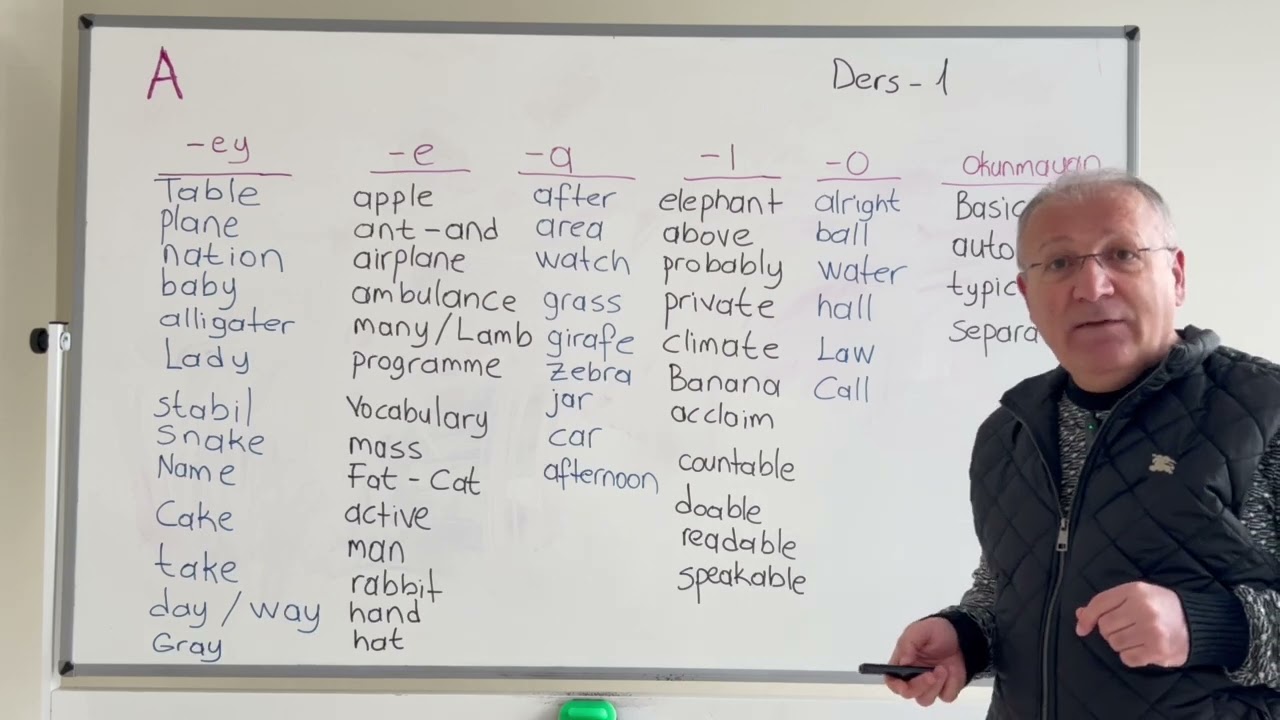 A
Ders - 1
-ey
Table
plane
nation
baby
alligater
Lady
stabil
snake
Name
Cake
take
day / way
Gray
-e
apple
ant - and
airplane
ambulance
many / Lamb
programme
Vocabulary
mass
Fat - Cat
active
man
rabbit
hand
hat
-a
after
area
watch
grass
girafe
zebra
jar
car
afternoon
-ı
elephant
above
probably
private
climate
Banana
acclaim
countable
doable
readable
speakable
-o
alright
ball
water
hall
Law
Call
okunmayan
Basic
auto
typic
separa